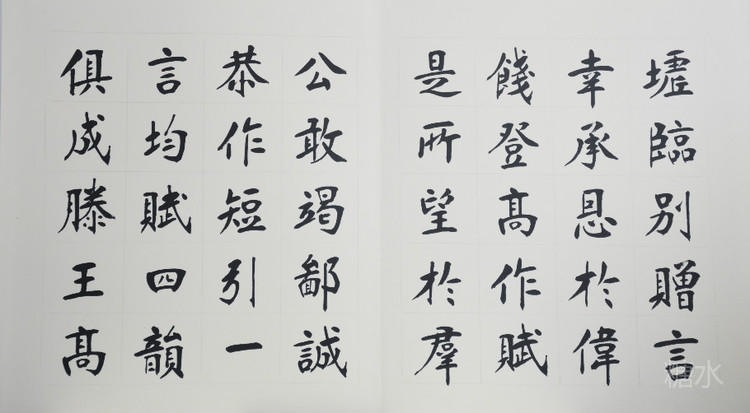 墟臨别贈言
幸承恩於偉
餞登髙作賦
是所望於羣
公敢竭鄙誠
恭作短引一
言均賦四韻
俱成滕王髙
糖水